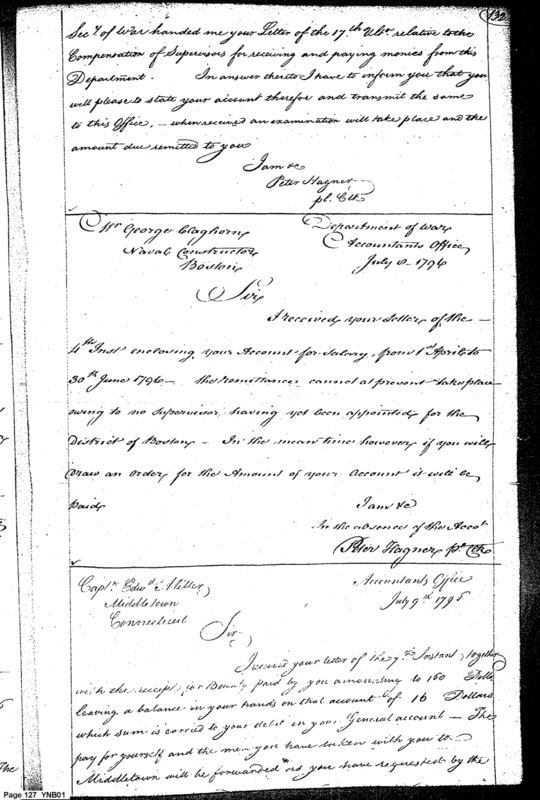 132
Secy. of War handed me your Letter of the 17th Ulto. relative to the
Compensation of Supervisors for receiving and paying monies from this
Department. In answer thereto I have to inform you that you
will please to state your account therefor and transmit the same
to this Office, – when received an examination will take place and the
amount due remitted to you
I am &c
Peter Hagner
pl. Clk
Mr George Claghorn
Naval Constructor
Boston
Department of War
Accountants Office
July 8. 1796
Sir
I received your Letter of the –
4th Inst enclosing your Account for Salary, from 1st April to
30th June 1796 – the remittance cannot at present take place
owing to no Supervisor having yet been appointed for the
District of Boston – In the mean time however if you will
draw an order for the Amount of your Account it will be
paid
I am &c
In the absence of the Accot
Peter Hagner pl. Clk
Captn. Edwd. Miller
Middletown
Connecticut
Accountants Office
July 9th 1796
Sir
I received your letter of the 7th Instant, together
with the receipts for Bounty paid by you amounting to 160 Dolls
leaving a balance in your hands on that account of 16 Dollars
which sum is carried to your debit on your General account – The
pay for yourself and the men you have taken with you to
Middletown will be forwarded as you have requested by the
The
Page 127 YNB01